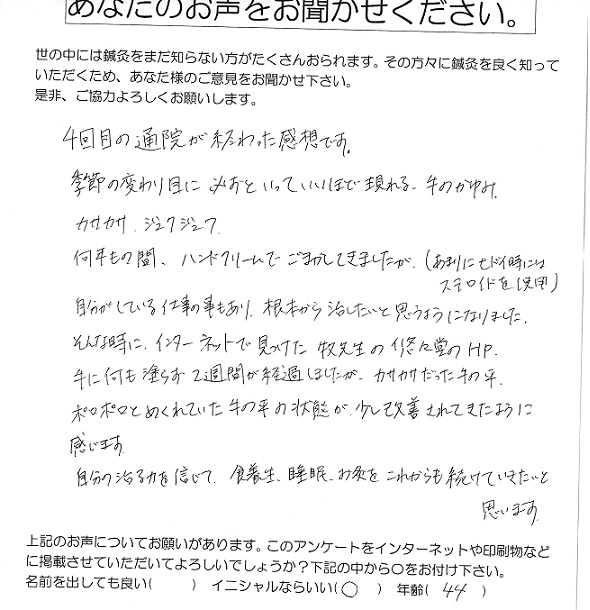 あなたのお声をお聞かせください。
世の中には鍼灸をまだ知らない方がたくさんおられます。その方々に鍼灸を良く知って
いただくため、あなた様のご意見をお聞かせ下さい。
是非、ご協力よろしくお願いします。
4回目の通院が終わった感想です。
季節の変わり目に必ずといっていいほど現れる、手のかゆみ、
カサカサ、ジュクジュク。
何年もの間、ハンドクリームでごまかしてきましたが、(あまりにヒドイ時には
ステロイドを使用)
自分がしている仕事の事もあり、根本から治したいと思うようになりました。
そんな時に、インターネットで見つけた牧先生の悠々堂のHP。
手に何も塗らず2週間が経過しましたが、カサカサだった手の平、
ボロボロとめくれていた手の平の状態が、少し改善されてきたように
感じます。
自分の治る力を信じて、食養生、睡眠、お灸をこれからも続けていきたいと
思います。
上記のお声についてお願いがあります。このアンケートをインターネットや印刷物など
に掲載させていただいてよろしいでしょうか？下記の中から○をお付け下さい。
名前を出しても良い( ) イニシャルならいい(○) 年齢( 44 )